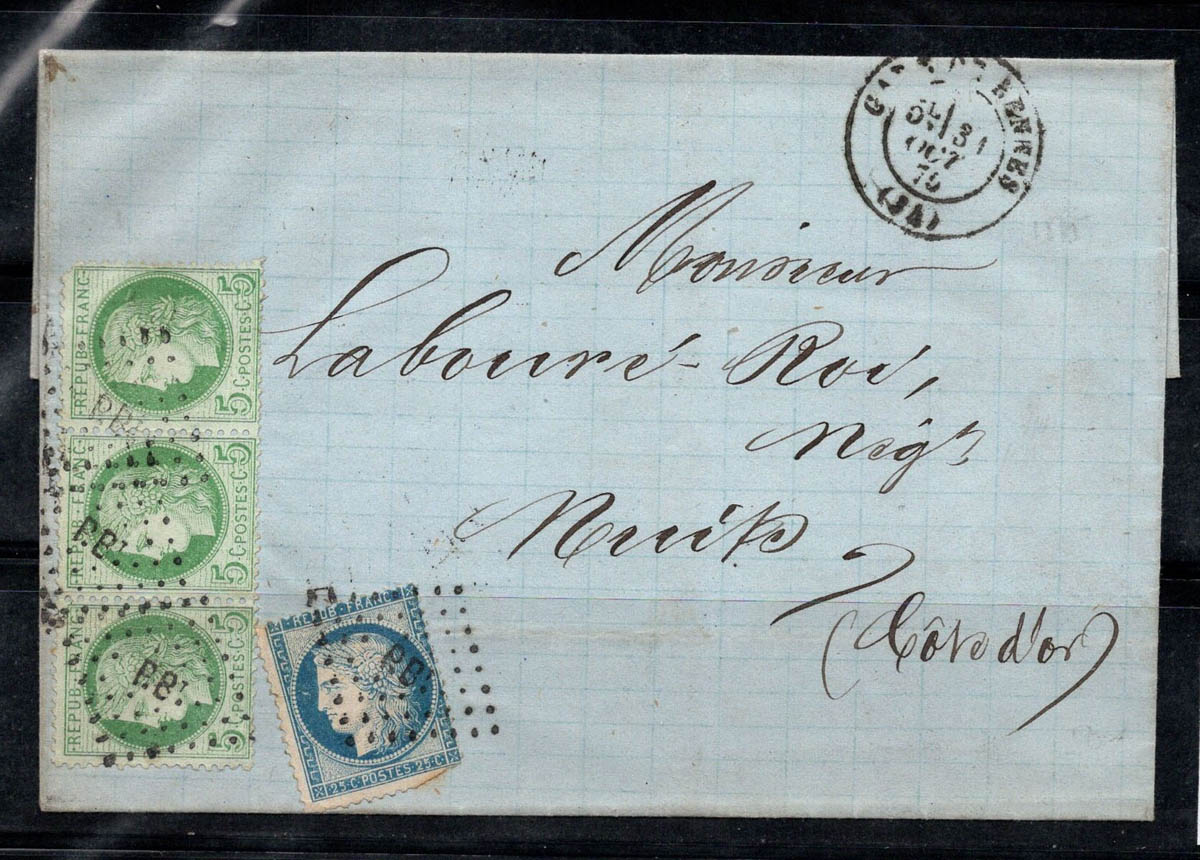 GARE DE RENNES
31
OCT
(34)
Monsieur
Labouré-Roi,
Nég.t
Nuits
(Côte d'or)
REPUB·FRANC·
5·C·POSTES·5·C
REPUB·FRANC·
5·C·POSTES·5·C
REPUB·FRANC·
5·C·POSTES·5·C
REPUB·FRANC·
25·C·POSTES·25·C